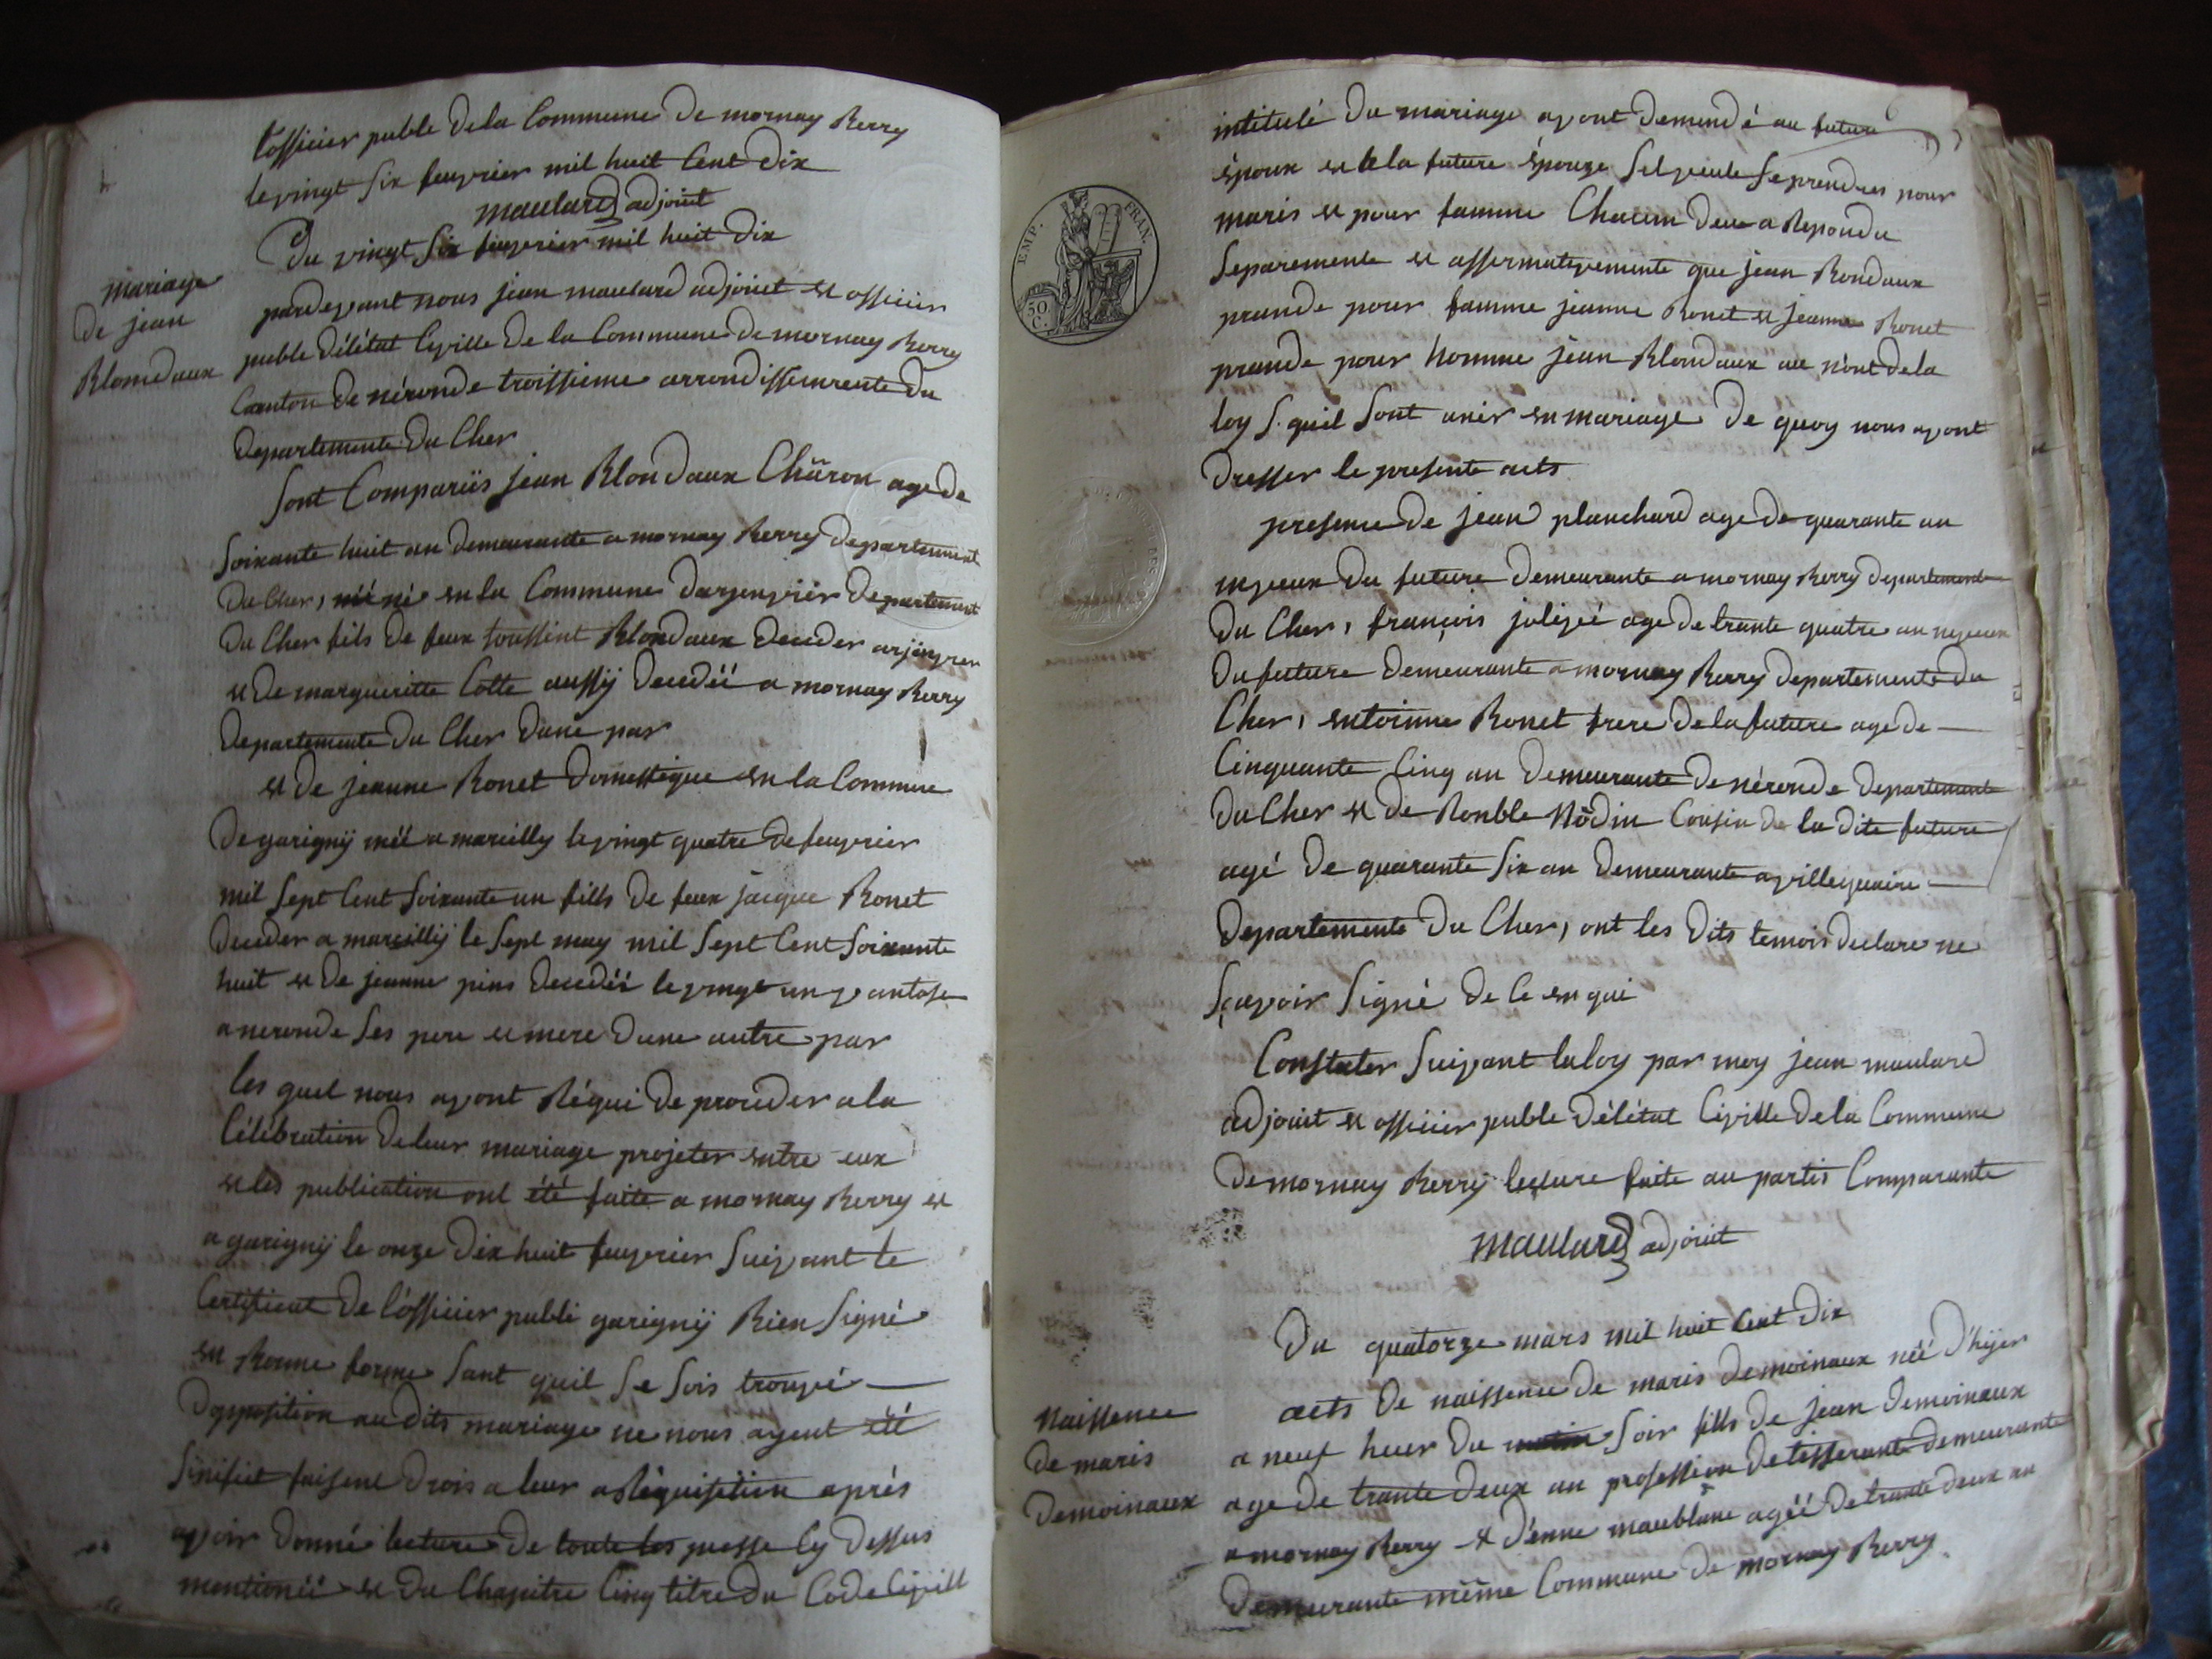 l'officier publle dela Commune De mornay Berry
le vingt six fevprier mil huit Cent Dix
maulard adjoint
Du vingt six fevprier mil huit Dix
mariage
de jean
Blondaux
pardevant nous jean maulard adjoint et officier
publle Délétat Civille De la Commune De mornay Berry
Canton De néronde troissieme arrondissemente Du
Departemente Du Cher
sont Comparüs jean Blondaux Chäron age de
soixante huit an demeurante a mornay Berry Departement
Du Cher, né en la Commune Dargenvier Departement
Du Cher fils De feux toussint Blondaux Deceder arjenvier
et De margueritte Cotte aussÿ Decedéé a mornay Berry
Departemente Du Cher Dune par
et De jeanne Bonet Domestique en la Commune
De garignÿ néé a marcilly le vingt quatre De fevprier
mil sept Cent soixante un fills De feux jacque Bonet
Deceder a marcillÿ le sept may mil sept Cent soixante
huit et De jeanne pins Decedéé le vingt un vantose
a neronde ses pere et mere Dune autre par
les quel nous avont Réqui De proceder a la
Célébration De leur mariage projeter entre eux
et les publication ont été faite a mornay Berry et
a garignÿ le onze Dix huit fevprier suivant le
Certificat De l'officier publi garignÿ Bien signé
en Bonne forme sant quil se sois trouvé
Dopposition au Dits mariage ne nous ayent été
sinifiét faisent Drois a leur a Réquisitiön aprés
avoir Donné lecture De toute les piesse Cy Dessus
mentionéé et Du Chapitre Cinq titre Du Code Civill
intitulé Du mariage avont Demendé au future
époux et la future épouze sil veule se prendres pour
maris et pour famme Chacun Deux a Repondu
separemente et affermativemente que jean Bondaux
prende pour famme jeanne Bonet et jeanne Bonet
prende pour homme jean Blondaux au nont De la
loy s. quil sont unir en mariage De quoy nous avont
Dresser le presente acts
presense De jean planchard age De quarante an
neveux Du future Demeurante a mornay Berry Departemente
Du Cher, françois jolivéé age De trante quatre an neveux
Du future Demeurante a mornay Berry Departemente Du
Cher, entoinne Bonet frere De la future age de
Cinquante Cinq an Demeurante De nérende Departemente
Du Cher et De Nodin Cousin De la Dite future
agé De quarante six an Demeurante a villequaire
Departemente Du Cher, ont les Dits temois Declare ne
sçavoir signé De Ce enqui
Constater suivant la loy par moy jean maulard
adjoint et officier publle Délétat Civille De la Commune
De mornay Berrÿ lecture faite au partis Comparante
maulard adjoint
Du quatorze mars mil huit Cent Dix
Naissence
De maris
Demoinaux
acts De naissence De maris Demoinaux néé D'hÿer
a neuf heur Du matin soir fills De jean Demoinaux
age De trante Deux an profession De tisserante Demeurante
a mornay Berry et D'enne maublanc agéé De trante Deux an
Demeurante même Commune De mornay Berry
EMP. FRAN.
50
C.